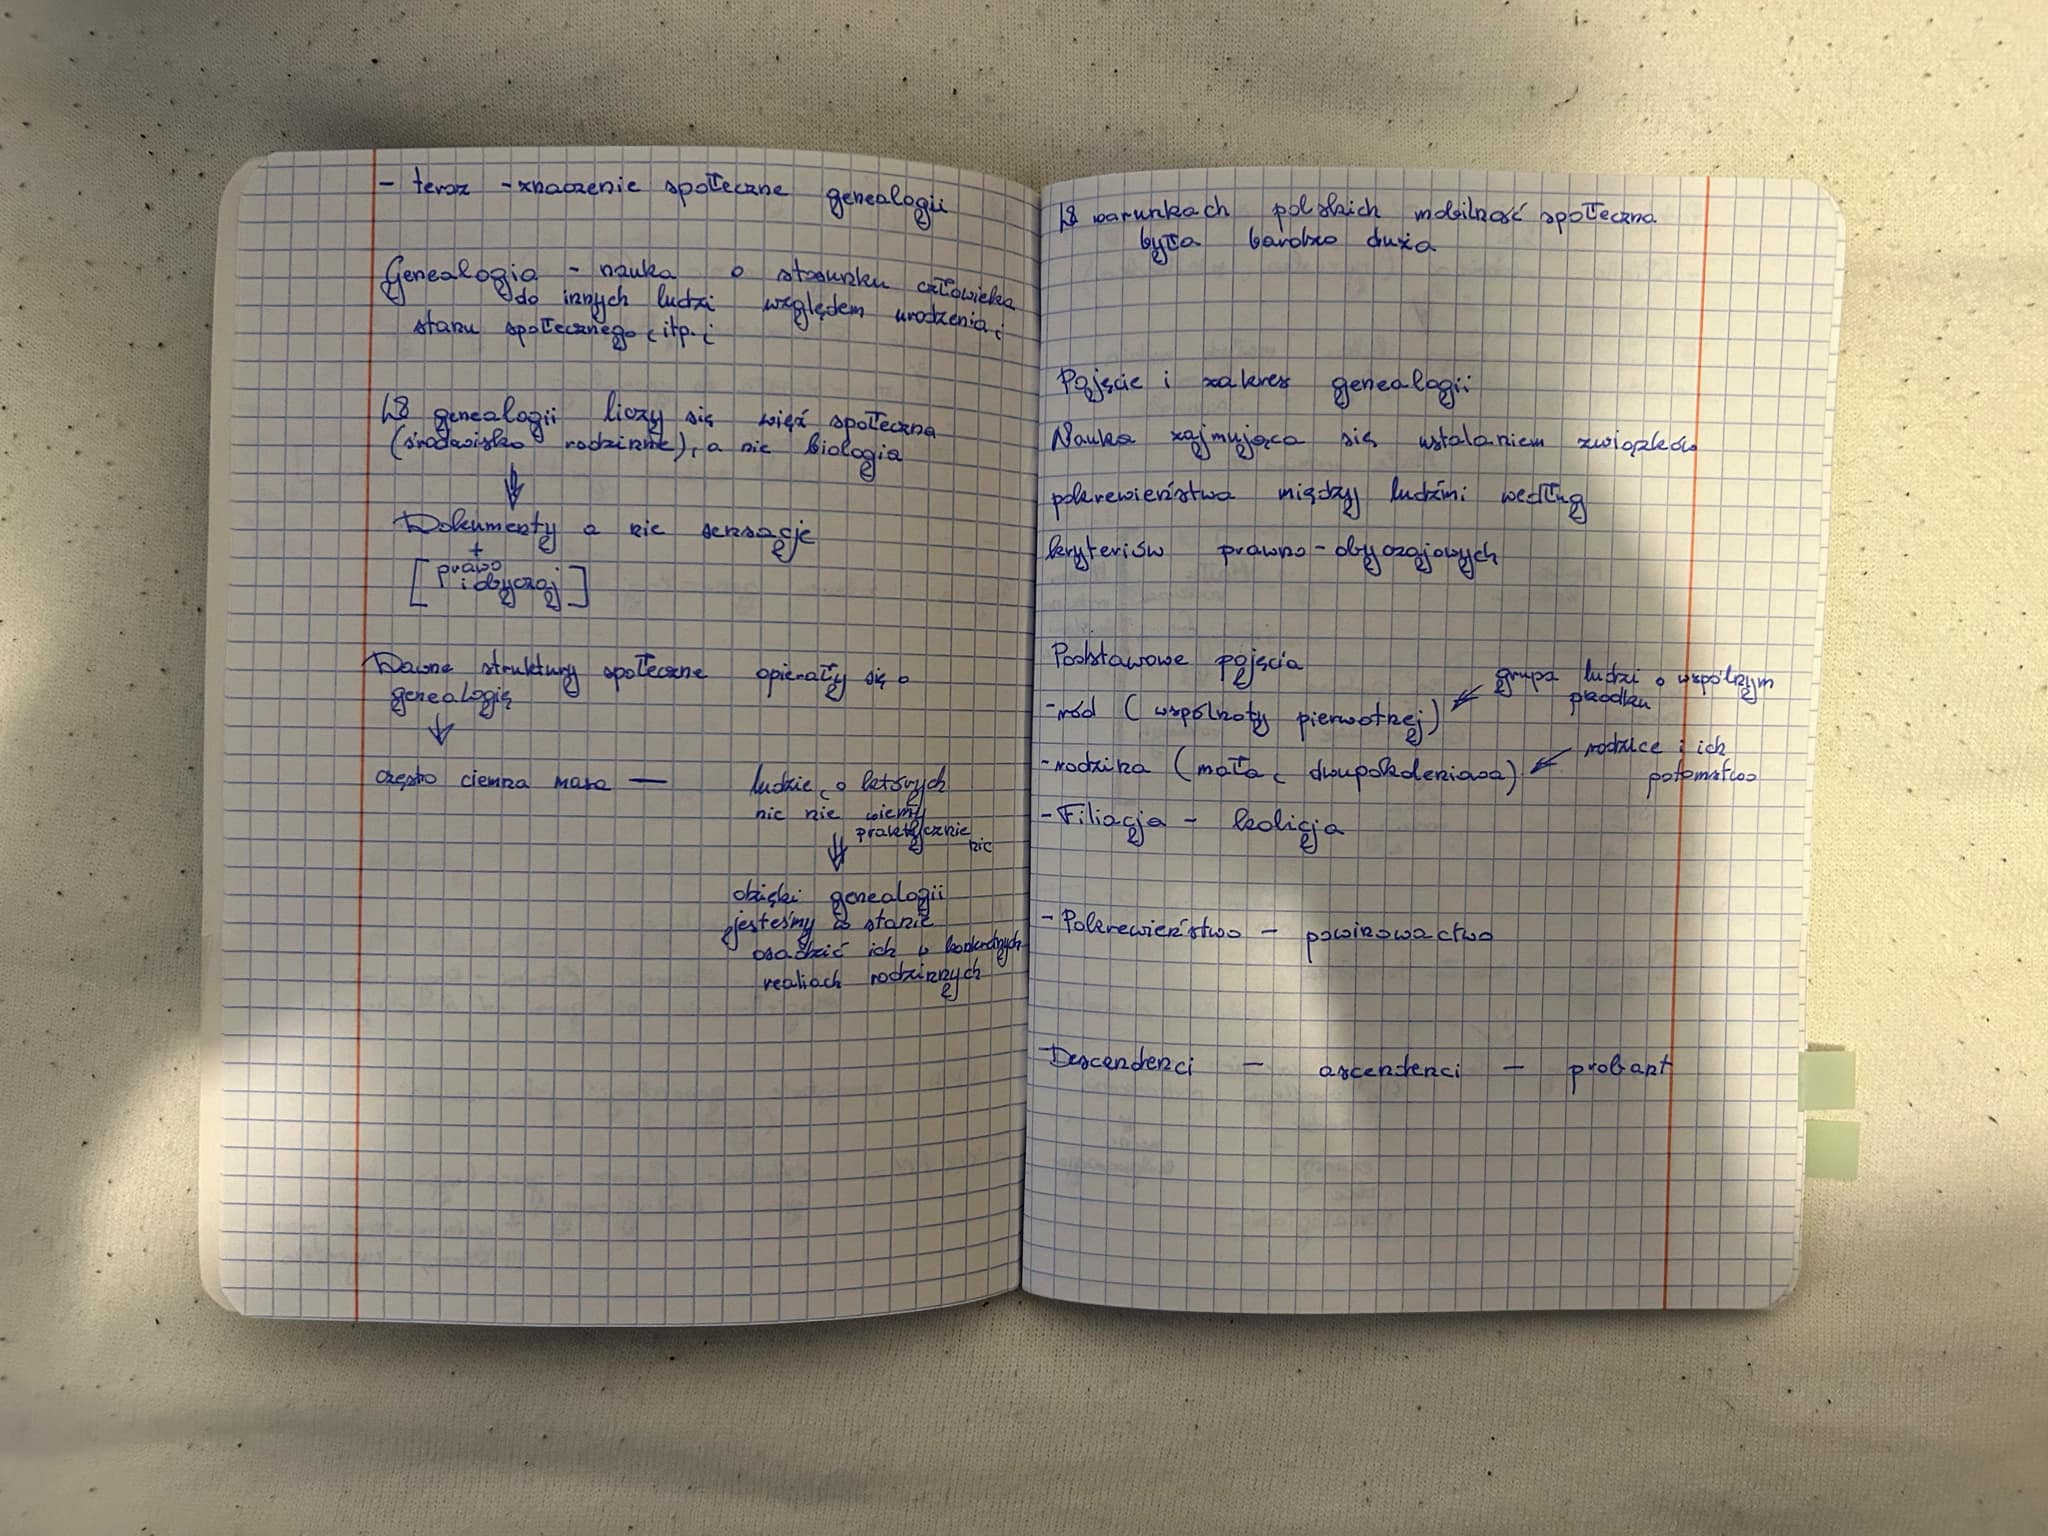 - teraz - znaczenie społeczne genealogii
Genealogia - nauka o stosunku człowieka
do innych ludzi względem urodzenia,
stanu społecznego, itp.
W genealogii liczy się więź społeczna
(środowisko rodzinne), a nie biologia
Dokumenty a nie sensacje
+
[prawo
i obyczaj]
Dawne struktury społeczne opierały się o
genealogię
często ciemna masa — ludzie, o których
nic nie wiemy
praktycznie
nic
dzięki genealogii
jesteśmy w stanie
osadzić ich w konkretnych
realiach rodzinnych
W warunkach polskich mobilność społeczna
była bardzo duża
Pojęcie i zakres genealogii
Nauka zajmująca się ustalaniem związków
pokrewieństwa między ludźmi według
kryteriów prawno-obyczajowych
Podstawowe pojęcia
grupa ludzi o wspólnym
przodku
- ród (wspólnoty pierwotnej)
rodzice i ich
potomstwo
- rodzina (mała, dwupokoleniowa)
- Filiacja - koligacja
- Pokrewieństwo - powinowactwo
Descendenci - ascendenci - probant